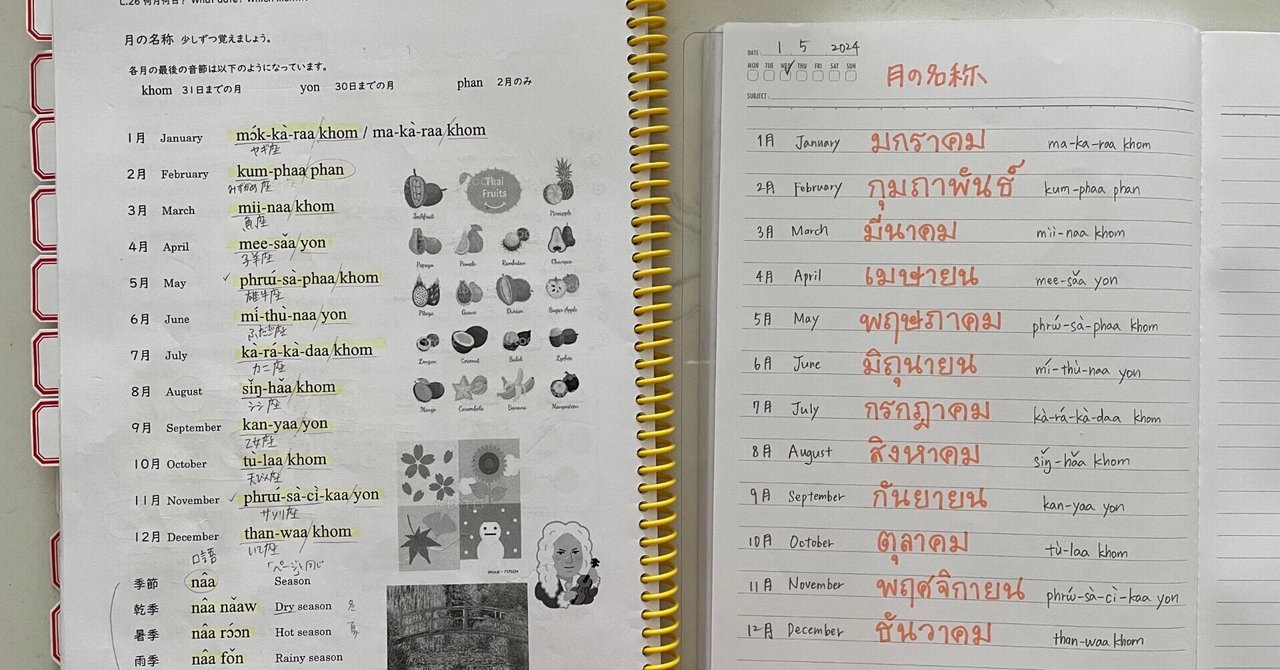 L.26 何月何日? What date? Which month?
月の名称 少しずつ覚えましょう。
各月の最後の音節は以下のようになっています。
khom 31日までの月 yon 30日までの月 phan 2月のみ
1月 January mɔ́k-kà-raa/khom / ma-kà-raa/khom
ヤギ座
2月 February kum-phaa/phan
みずがめ座
3月 March mii-naa/khom
魚座
4月 April mee-sǎa/yon
子羊座
5月 May ✓ phrɯ́-sà-phaa/khom
雄牛座
6月 June mí-thù-naa/yon
ふたご座
7月 July ka-rá-kà-daa/khom
カニ座
8月 August sǐŋ-hǎa/khom
シシ座
9月 September kan-yaa/yon
乙女座
10月 October tù-laa khom
天びん座
11月 November ✓ phrɯ́-sà-cì-kaa/yon
サソリ座
12月 December than-waa/khom
いて座
口語
季節 nâa Season
乾季 nâa nǎaw Dry season 冬
暑季 nâa rɔ́ɔn Hot season 夏
雨季 nâa fǒn Rainy season
Thai Fruits
Jackfruit Pineapple
Papaya Pomelo Rambutan Champoo
Pitaya Guava Durian Sugar Apple
Longan Coconut Salak Lychee
Mango Carambola Banana Mangosteen
DATE 1 5 2024
MON TUE WED THU FRI SAT SUN
✓
月の名称
SUBJECT
1月 January มกราคม ma-ka-raa khom
2月 February กุมภาพันธ์ kum-phaa phan
3月 March มีนาคม mii-naa khom
4月 April เมษายน mee-sǎa yon
5月 May พฤษภาคม phrɯ́-sà-phaa khom
6月 June มิถุนายน mí-thù-naa yon
7月 July กรกฎาคม kà-rá-kà-daa khom
8月 August สิงหาคม sǐŋ-hǎa khom
9月 September กันยายน kan-yaa yon
10月 October ตุลาคม tù-laa khom
11月 November พฤศจิกายน phrɯ́-sà-cì-kaa yon
12月 December ธันวาคม than-waa khom